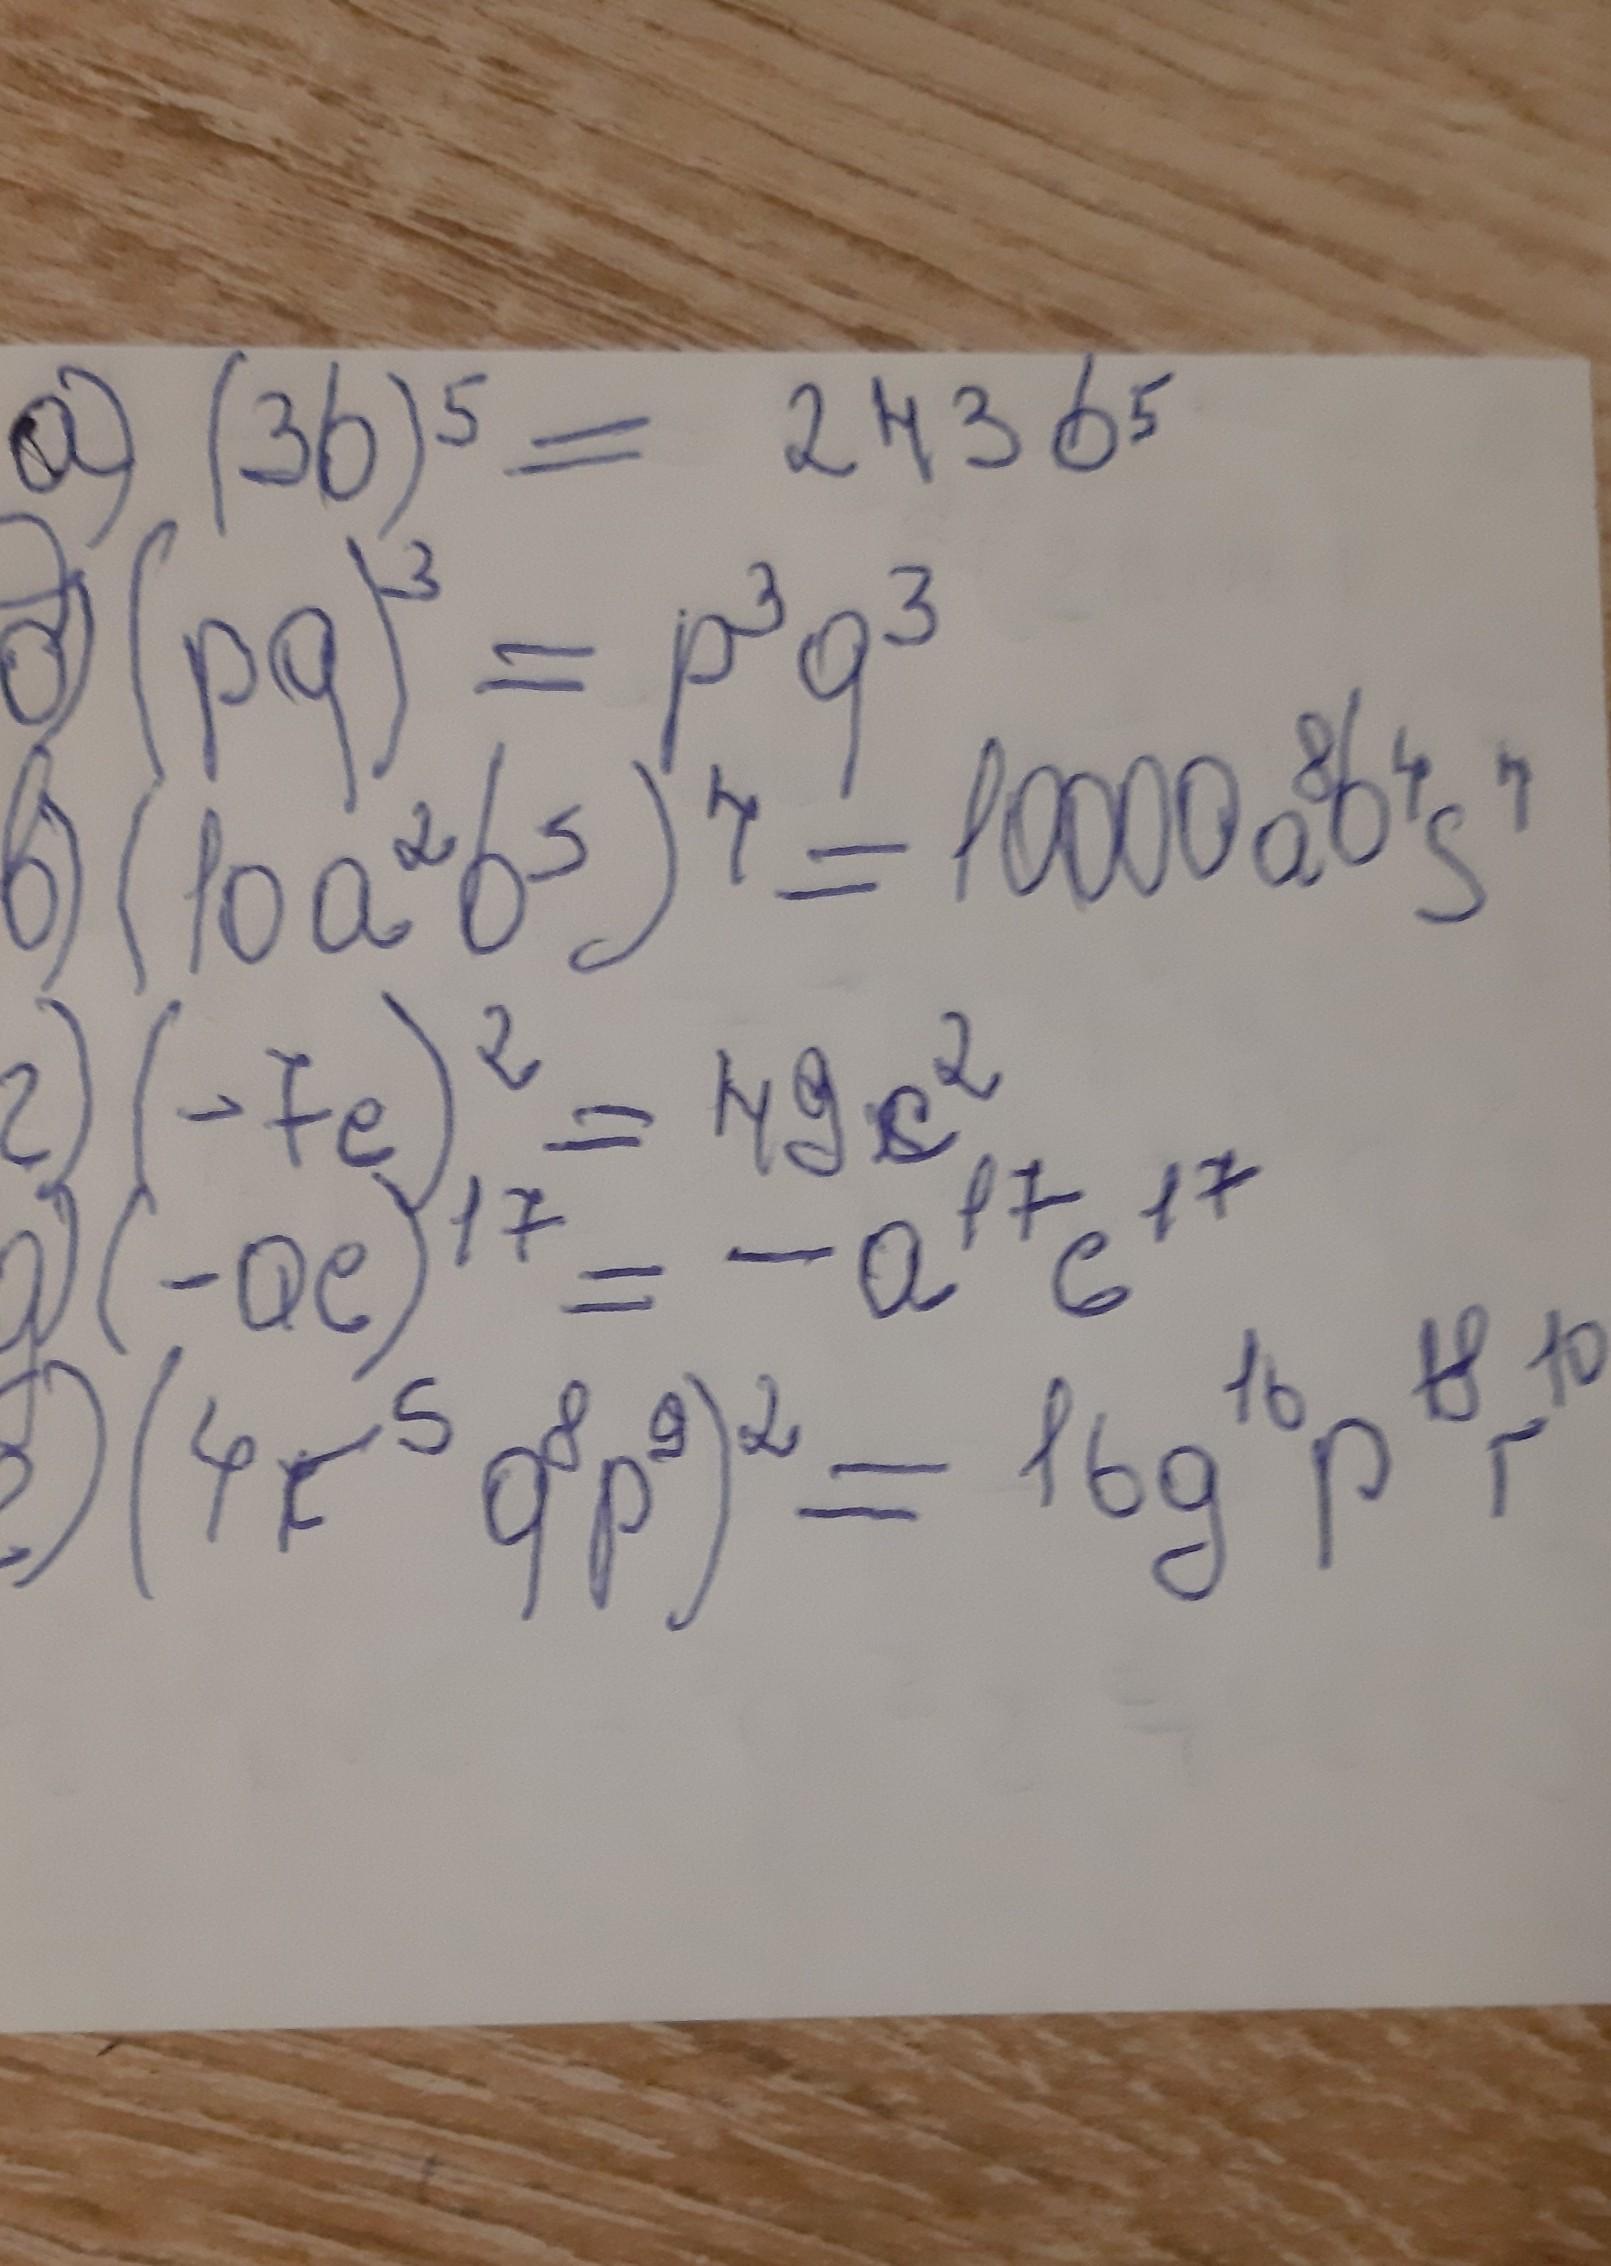 а) (3b)⁵ = 243b⁵
б) (pq)³ = p³q³
в) (10a²b⁵)⁴ = 10000a⁸b⁴s⁴
г) (-7c)² = 49c²
д) (-ac)¹⁷ = -a¹⁷c¹⁷
е) (4r⁵q⁸p⁹)² = 16g¹⁶p¹⁸r¹⁰